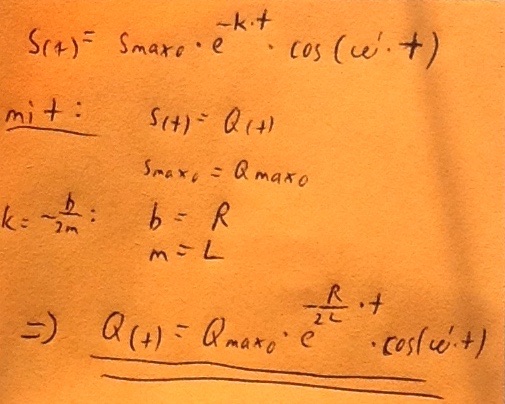 s(t) = smax₀ · e^(-k·t) · cos(ω'·t)
mit: s(t) = Q(t)
smax₀ = Qmax₀
k = -b/2m : b = R
m = L
=> Q(t) = Qmax₀ · e^(-R/2L · t) · cos(ω'·t)